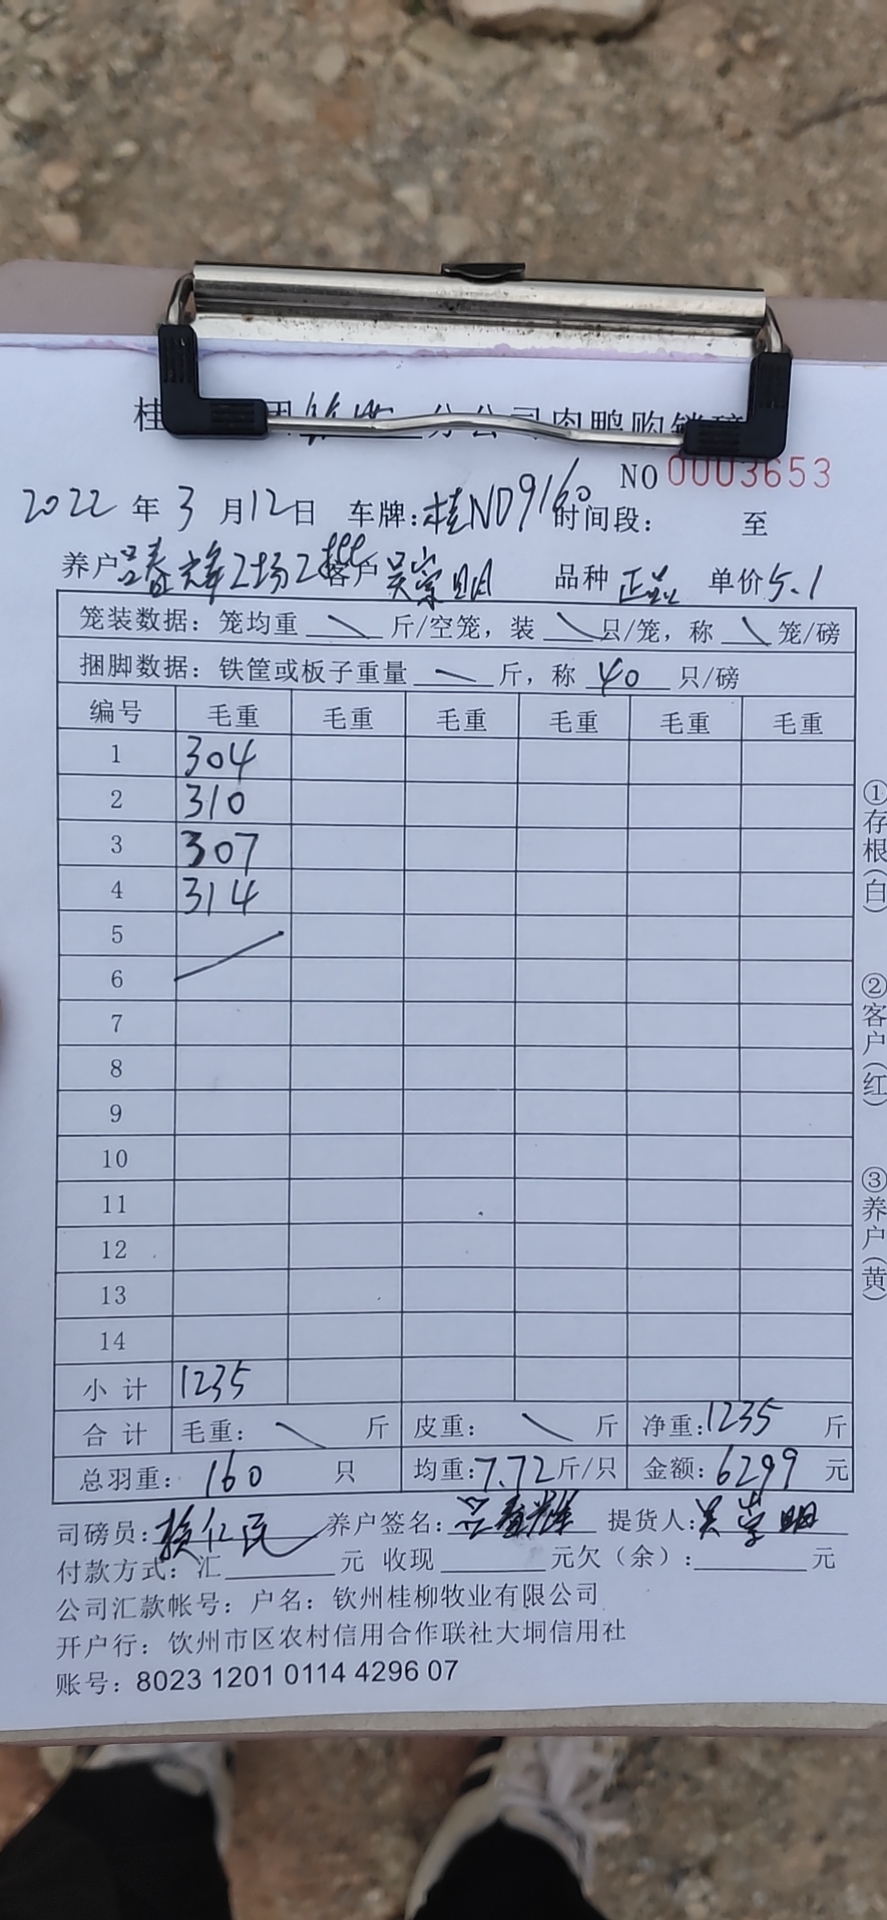 桂 分公司肉鸭购销磅
NO 0003653
2022 年 3 月12日 车牌:桂ND9160 时间段: 至
养户 2场2 客户 吴崇明 品种 正品 单价5.1
笼装数据: 笼均重 斤/空笼, 装 只/笼, 称 笼/磅
捆脚数据: 铁筐或板子重量 斤, 称 40 只/磅
编号 毛重 毛重 毛重 毛重 毛重 毛重
1 304
2 310
3 307
4 314
5
6
7
8
9
10
11
12
13
14
小 计 1235
合 计 毛重: 斤 皮重: 斤 净重:1235 斤
总羽重: 160 只 均重:7.72斤/只 金额:6299 元
司磅员: 养户签名: 提货人:吴崇明
付款方式: 汇 元 收现 元欠(余): 元
公司汇款帐号: 户名: 钦州桂柳牧业有限公司
开户行: 钦州市区农村信用合作联社大垌信用社
账号: 8023 1201 0114 4296 07
①存根(白)
②客户(红)
③养户(黄)